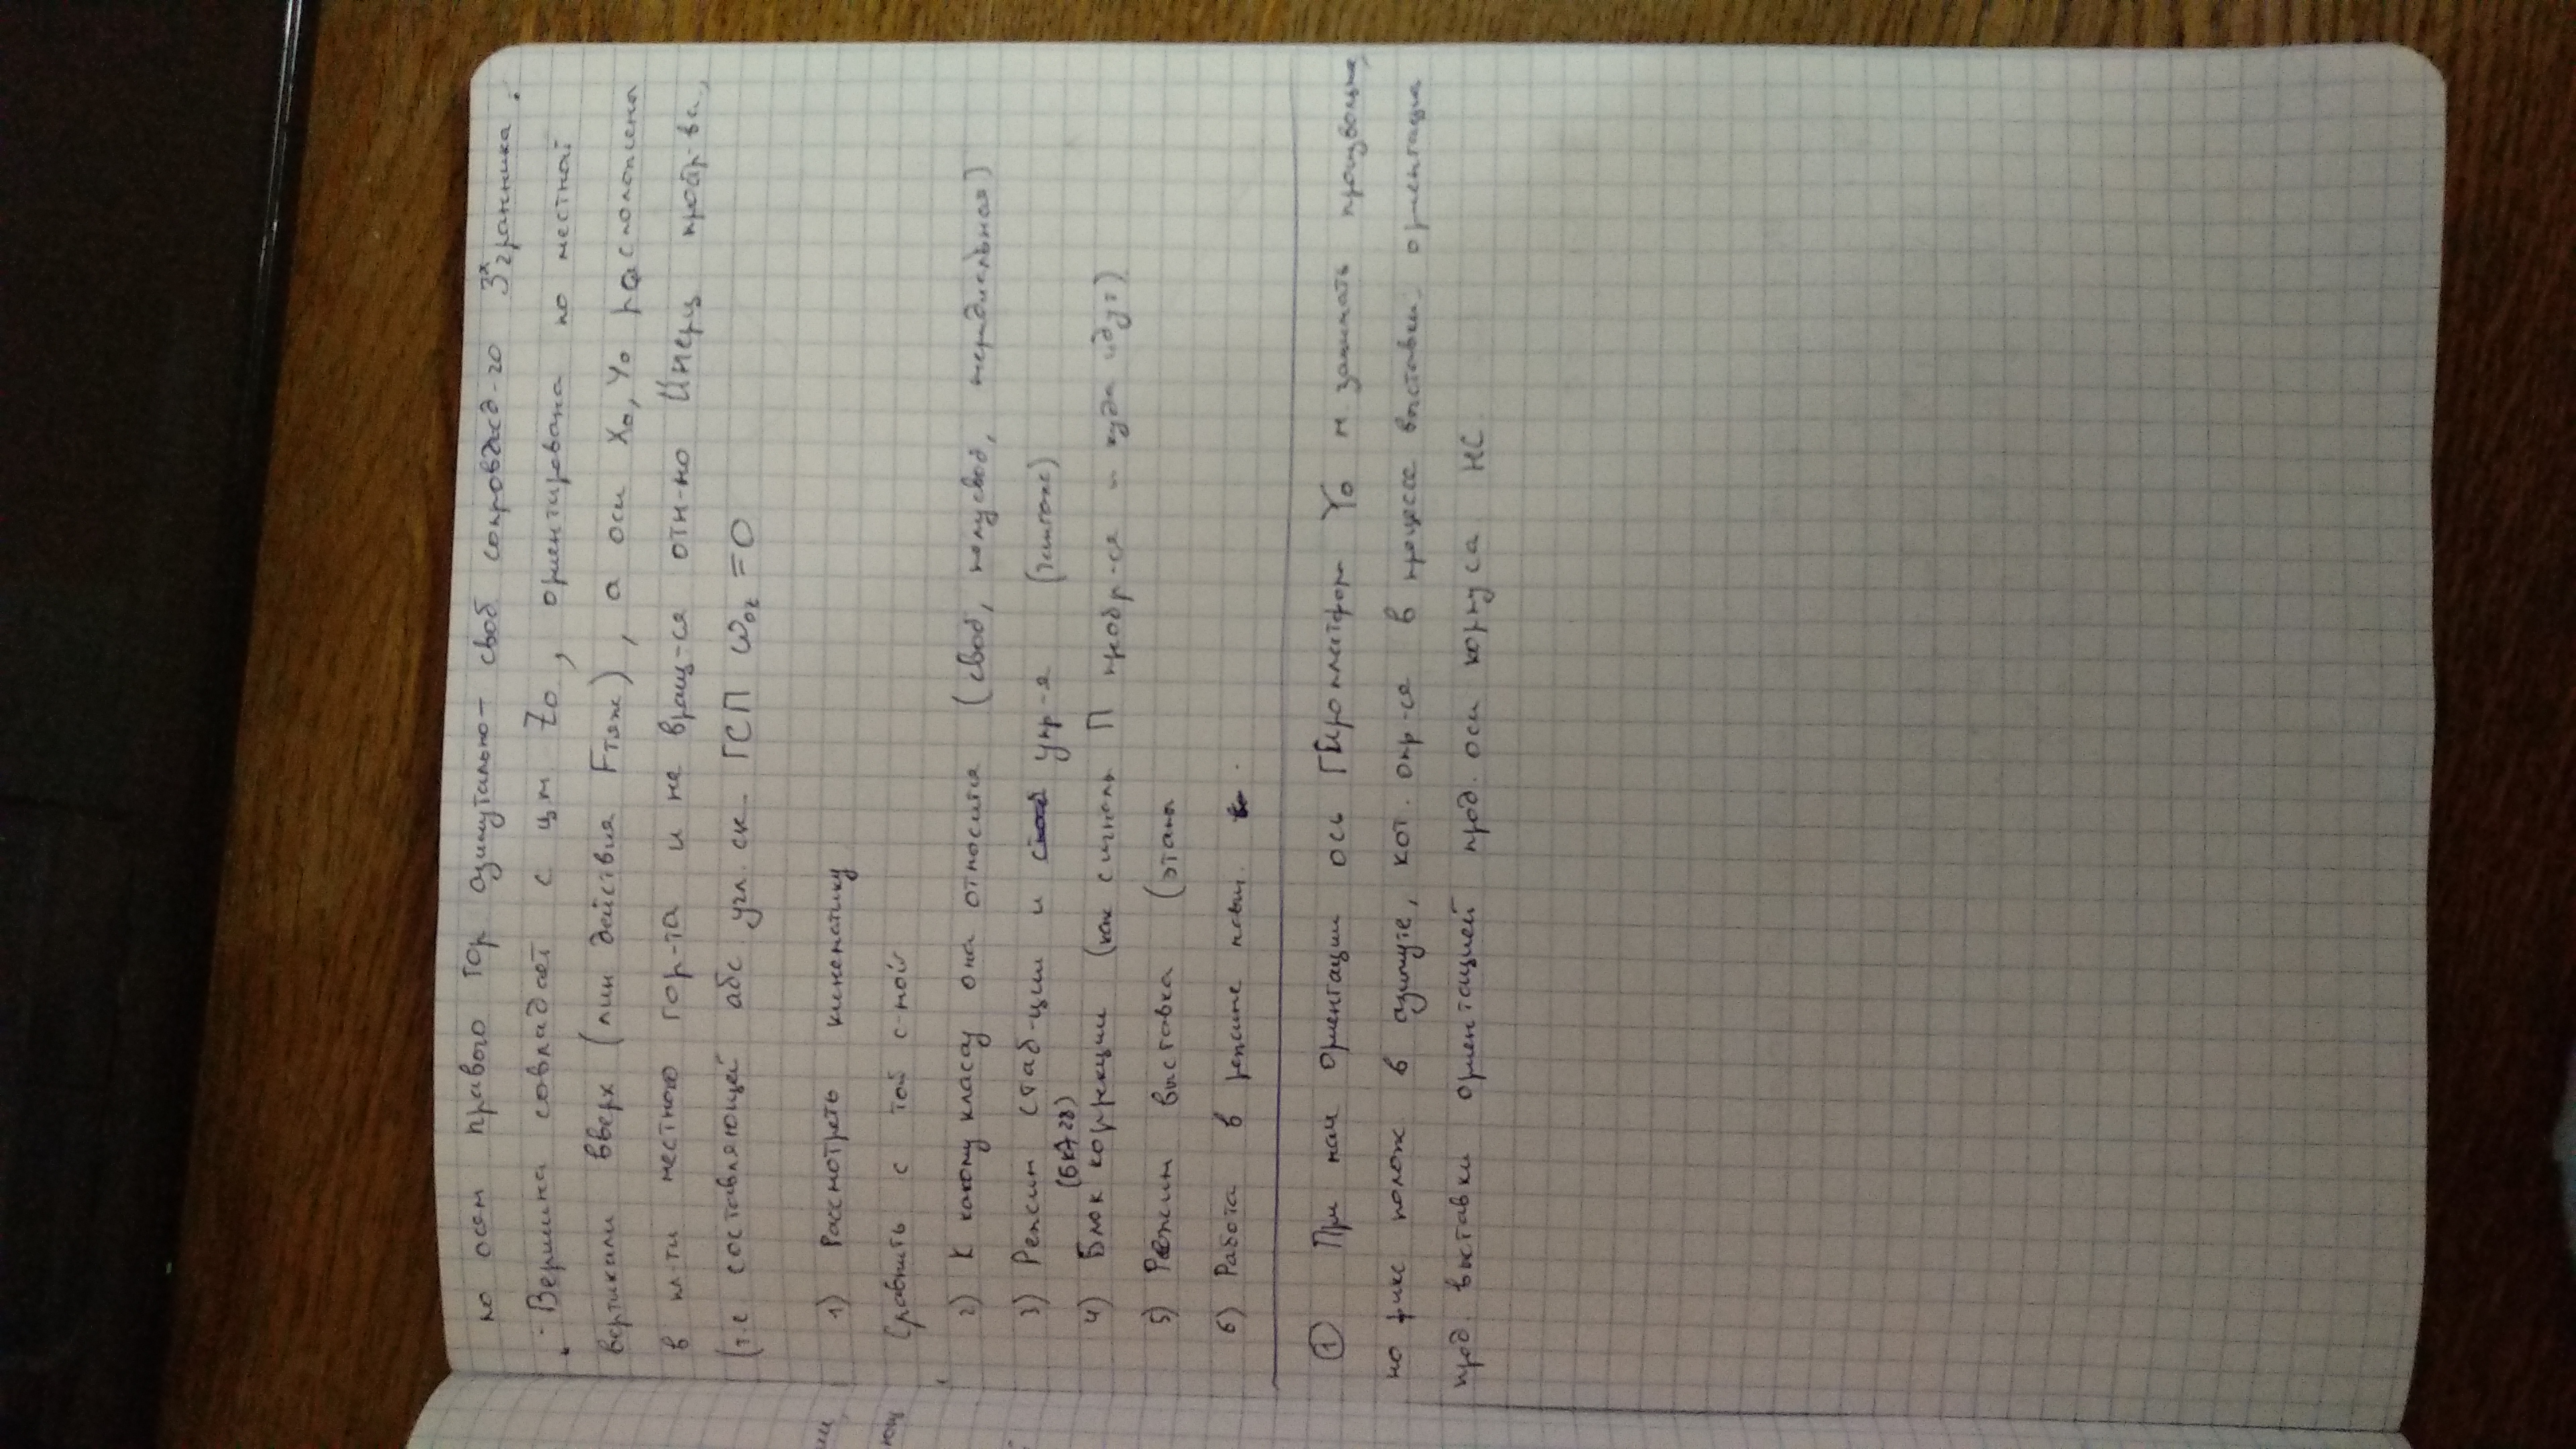 по осям правого гор азимутально- своб сопровожд-го 3х гранника.
· Вершина совпадает с цм Z₀, ориентирована по местной
вертикали вверх (лин действия Fтяж), а оси X₀, Y₀ расположены
в пл-ти местного гор-та и не вращ-ся отн-но Инерц простр-ва,
(т.е составляющей абс. угл. ск. ГСП ω₀z = 0
1) Рассмотреть кинематику
Сравнить с той с-ной
2) К какому классу она относится (свод, полусвод, меридиельная)
3) Режим стаб-ции и упр-я (тангаж)
(БКА22)
4) Блок коррекции (как сигналы П преобр-ся и куда идут)
5) Режим выставка (этапы
6) Работа в режиме навиг.
① При нач ориентации ось Гироплатформ Y₀ м занимать произвольные,
но фикс полож в азимуте, кот. опр-ся в процессе выставки ориентация
прод. выставки ориентацией прод. оси корпуса НС.